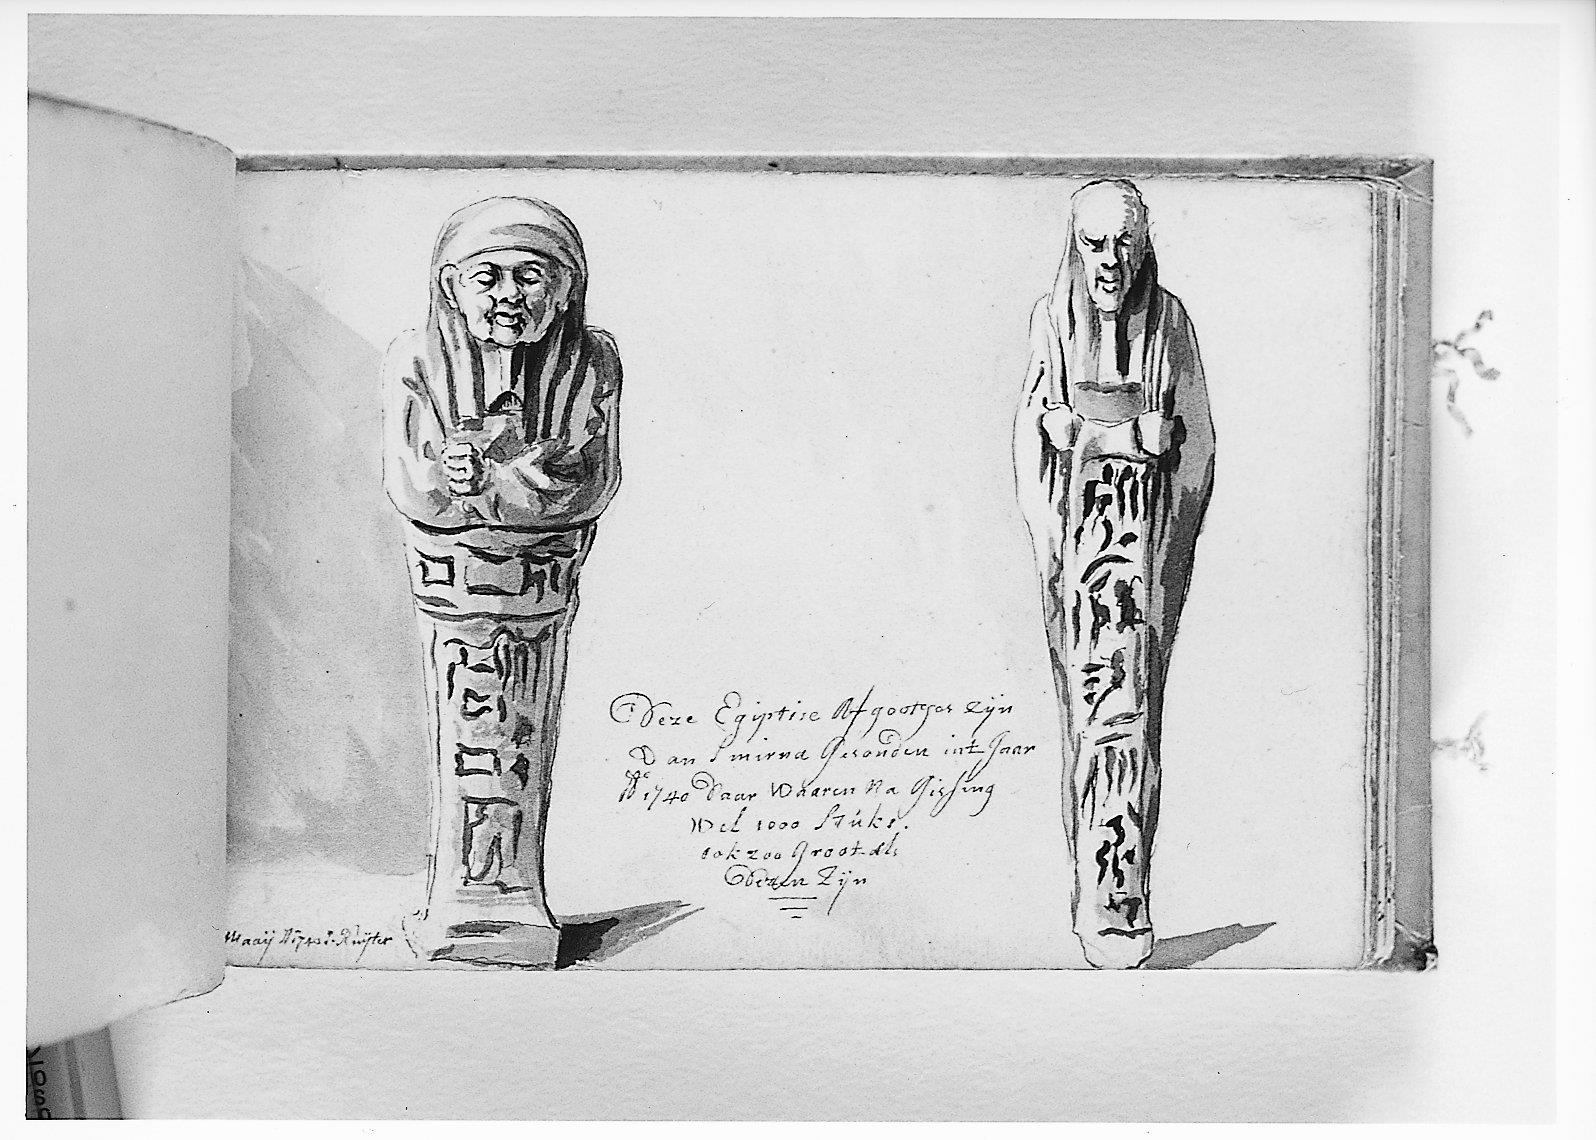 Deze Egiptise Afgootges zijn
van Smirna Gesonden int Jaar
A° 1740 daar waaren na Gissing
wel 1000 stuks.
ook zoo Groot als
Dezen Zijn
Maaij A° Ruijter